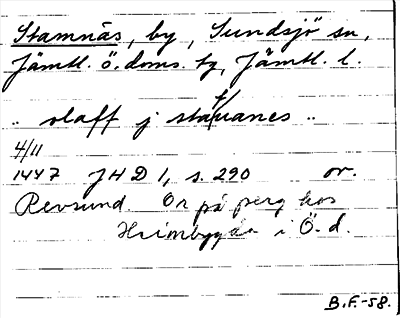 Stamnäs, by, Sundsjö sn,
Jämtl. ö. doms. tg, Jämtl. l.
" olaff j stauanes "
4/11
1447 JHD 1, s. 290 or.
Revsund. Or på perg hos
i Ö. d.
B.F.-58.